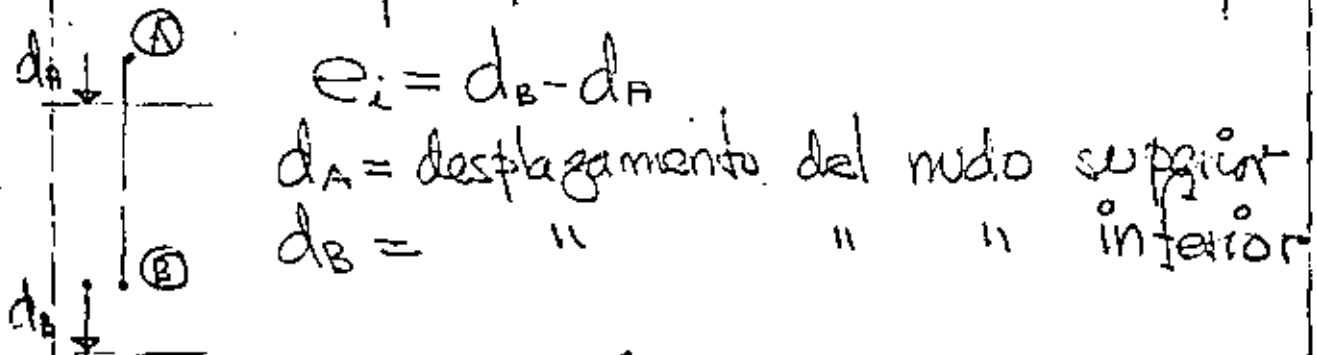 Ⓐ
d_A
e_i = d_B - d_A
d_A = desplazamiento del nudo superior
d_B = " " " inferior
Ⓑ
d_B